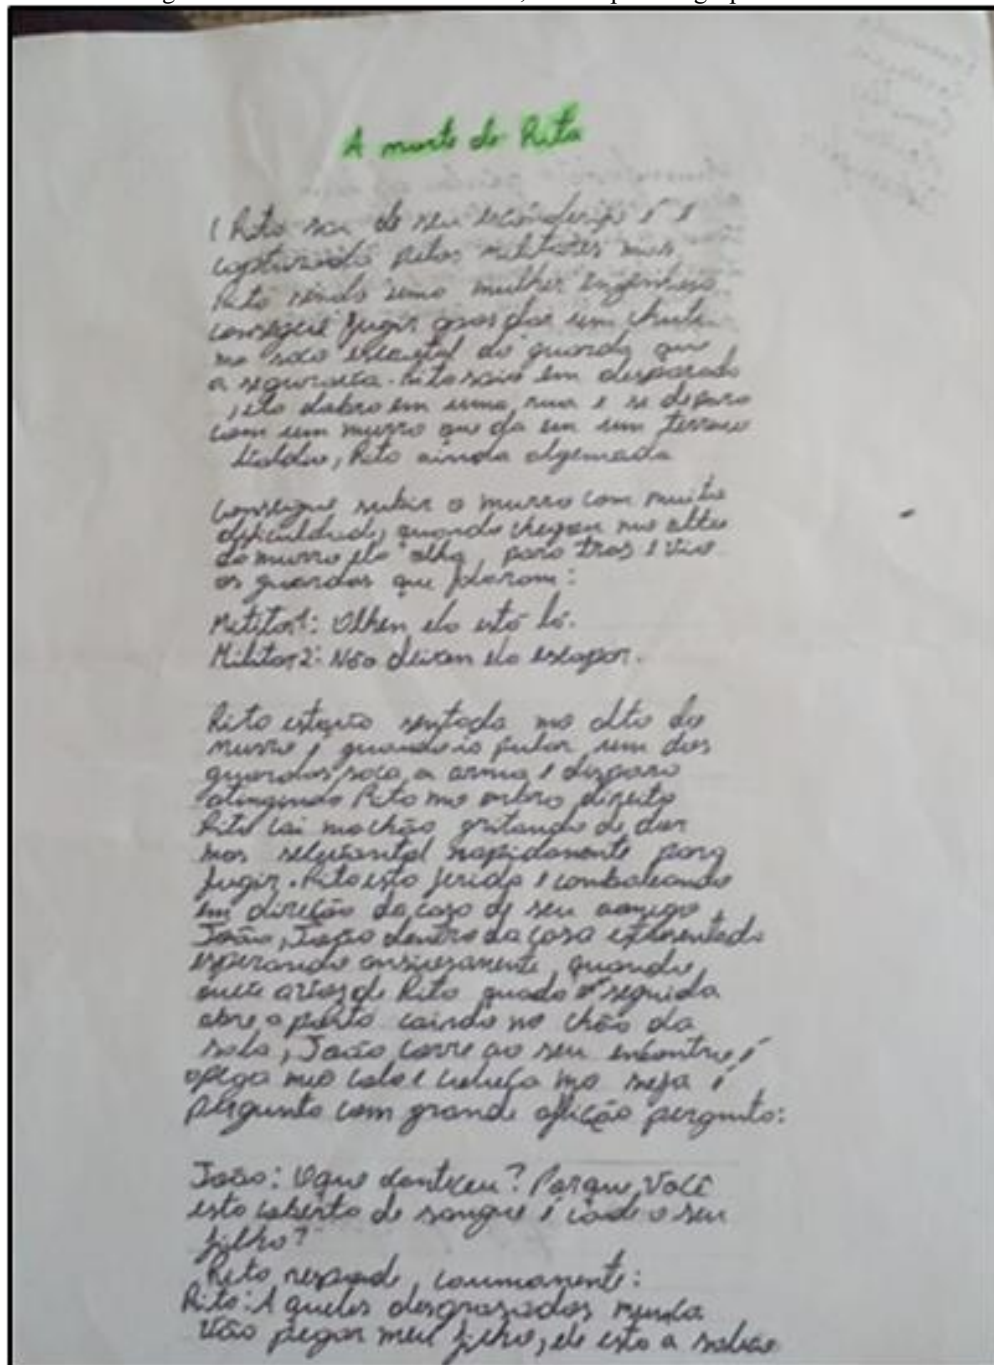 A morte de Rita
( Rita sai de seu esconderijo é é
capturada pelos militares mas
Rita sendo uma mulher engenhosa
consegue fugir apos dar um chute
no saco escrotal do guarda que
a segurava. Rita saiu em desparada
, ela dobra em uma rua e se depara
com um murro que da em um terreno
baldio, Rita ainda algemada
Consegue subir o murro com muita
dificuldade, quando chegou no alto
do murro ela olha para tras e viu
os guardas que falaram:
Militar1: Olhem ela está lá.
Militar2: Não deixem ela escapar.
Rita estava sentada no alto do
murro é quando ia pular um dos
guardas saca a arma e dispara
atingindo Rita no ombro direito
Rita cai no chão gritando de dor
mas se levanta rapidamente para
fugir. Rita esta ferida e cambaleando
em direção da casa de seu amigo
João, João dentro da casa
esperando ansiosamente quando
ouve a voz de Rita seguida
abre a porta caindo no chão da
sala, João corre ao seu encontro é
a pega no colo e coloca na mesa é
pergunta com grande aflição pergunta:
João: Oque conteceu? Porque você
esta coberta de sangue é cade o seu
filho?
Rita responde,
Rita: Aqueles desgraçados nunca
vão pegar meu filho, ele esta a salvo